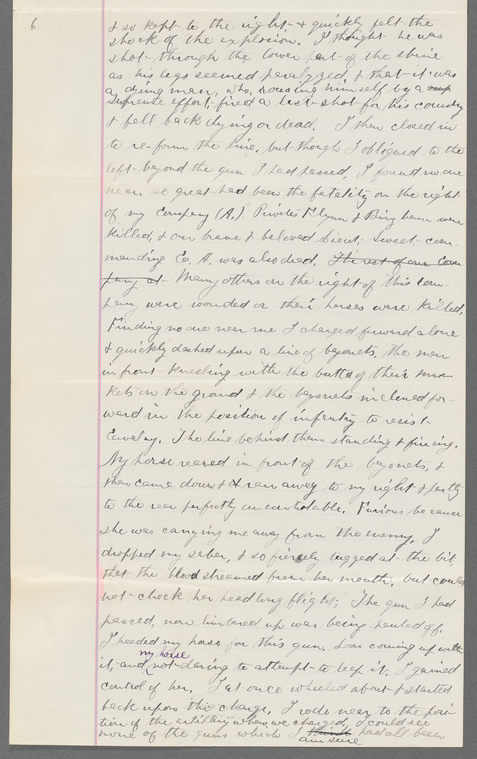 6
& so kept to the right & quickly felt the
shock of the explosion. I thought he was
shot through the lower part of the spine
as his legs seemed paralyzed, & that it was
a dying man, who, rousing himself by a sup
supreme effort, fired a last shot for his country
& fell back dying or dead. I then closed in
to re-form the line, but though I obliqued to the
left beyond the gun I had passed, I found no one
near, so great had been the fatality on the right
of my Company (A.). Privates Flynn & Bingham were
killed, & our brave & beloved Lieut. Sweet com-
manding Co. A. was also dead. The rest of our Com
pany at Many others on the right of this Com-
pany were wounded or their horses were killed.
Finding no one near me I charged forward alone
& quickly dashed upon a line of bayonets, the men
in front kneeling with the butts of their mus-
kets on the ground & the bayonets inclined for-
ward in the position of infantry to resist
Cavalry. The line behind them standing & fireing.
My horse reared in front of the bayonets, &
then came down & ran away to my right & partly
to the rear perfectly uncontrolable. Furious because
she was carrying me away from the enemy, I
dropped my saber, & so fiercely tugged at the bit,
that the blood streamed from her mouth, but could
not check her headlong flight; The gun I had
passed, now limbered up was being hauled off.
I headed my horse for this gun, soon coming up with
it, and my horse not daring to attempt to leap it, I gained
control of her. I at once wheeled about & started
back upon the charge. I rode near to the posi-
tion of the artillery where we charged, I could see
none of the guns which I think am sure had all been